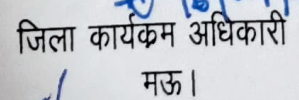 जिला कार्यक्रम अधिकारी
मऊ।